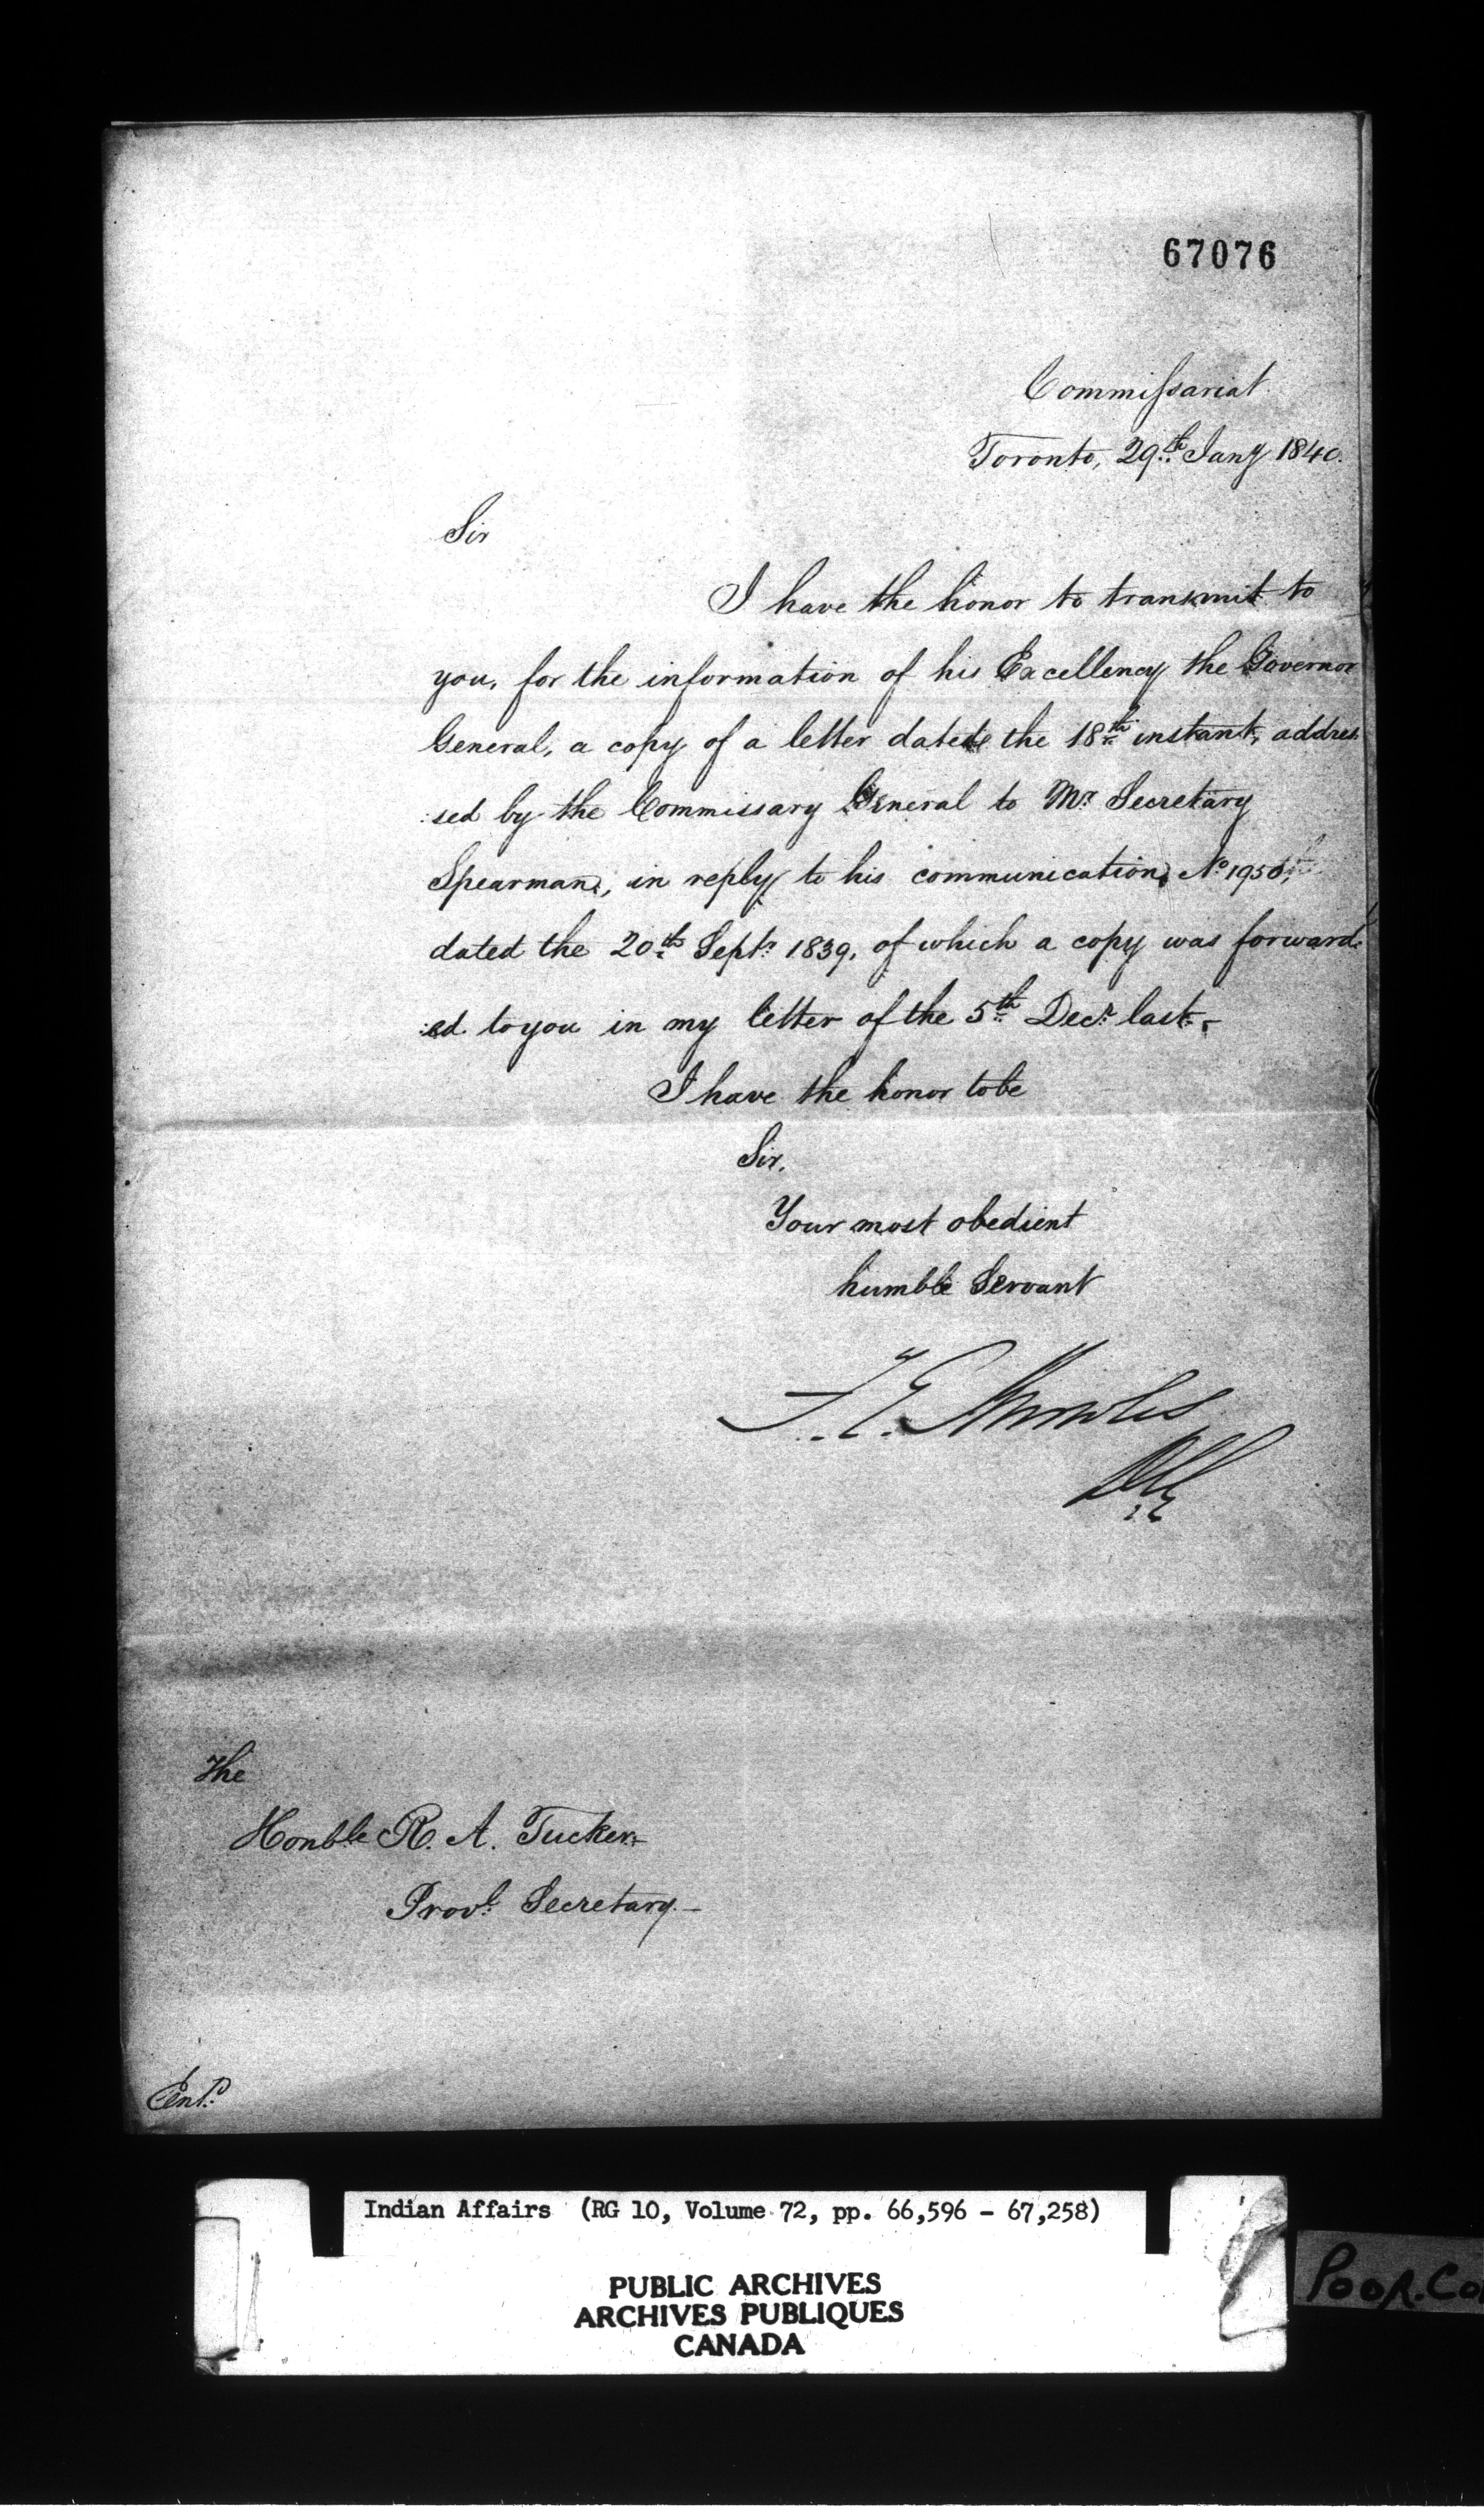 67076
Commissariat
Toronto, 29th Jany 1840.
Sir
I have the honor to transmit to
you, for the information of his Excellency the Governor
General, a copy of a letter dated the 18th instant, addres
:sed by the Commissary General to Mr Secretary
Spearman, in reply to his communication, No
dated the 20th Septr 1839, of which a copy was forward:
:ed to you in my letter of the 5th Decr last.
I have the honor to be
Sir,
Your most obedient
humble Servant
The
Honble R. A. Tucker
Provl Secretary.
Entd
Indian Affairs (RG 10, Volume 72, pp. 66,596 - 67,258)
PUBLIC ARCHIVES
ARCHIVES PUBLIQUES
CANADA
POOR. CO